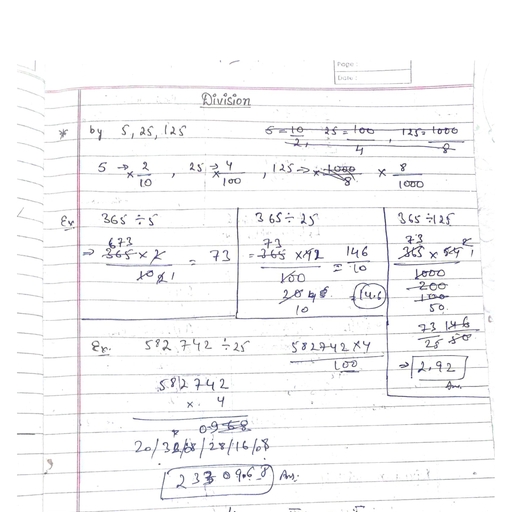 Page:
Date:
Division
* by 5, 25, 125 5 = 10/2, 25 = 100/4, 125 = 1000/8
5 → × 2/10, 25 → × 4/100, 125 → × 1000/8 × 8/1000
Ex 365 ÷ 5
⇒ 365 × 2 / 10 = 73
365 ÷ 25
73
= 365 × 4 2 / 100 = 146/10
10
= 14.6
365 ÷ 125
73
365 × 8 / 1000
200
100
50
73 146
25 50
⇒ 2.92 Ans.
Ex. 582742 ÷ 25 582742 × 4 / 100
582742
× 4
0968
20/32/08/28/16/08
23309.68 Ans.